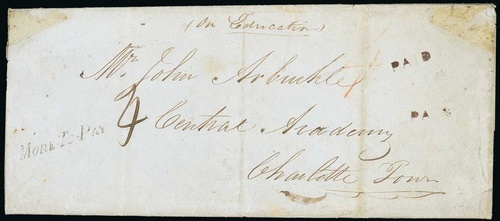 (On Education)
Mr John Arbuckle
PAID
4
Central Academy
PAID
MORE TO PAY
Charlotte Town